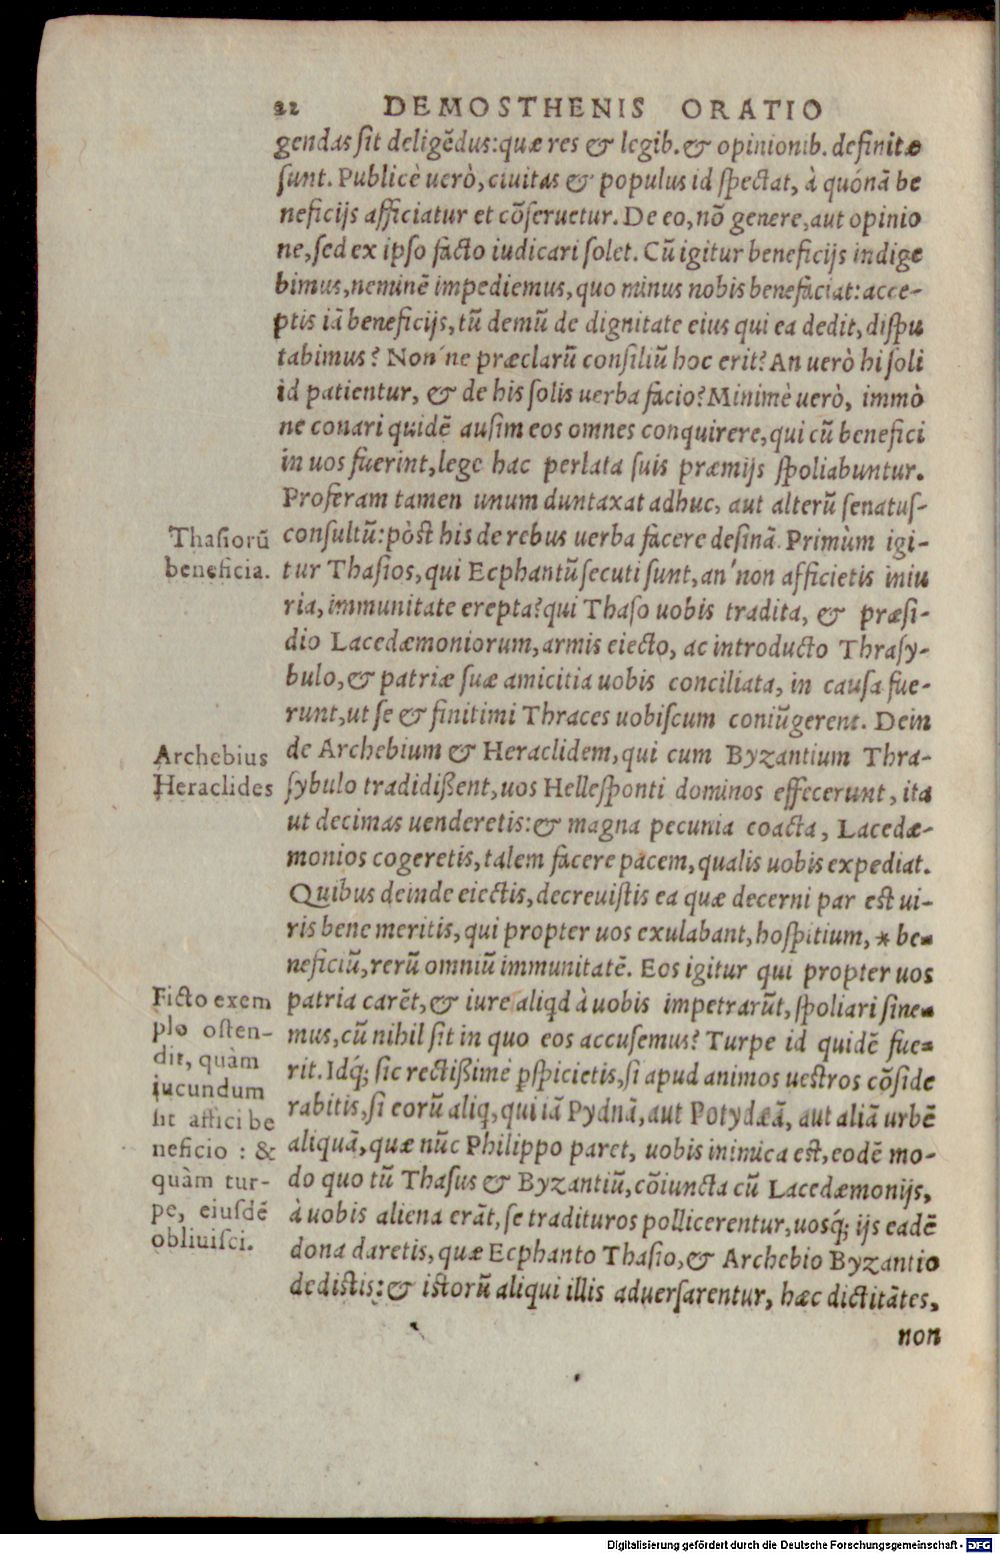 22 DEMOSTHENIS ORATIO
gendas sit deligẽdus: quæ res & legib. & opinionib. definitæ
sunt. Publicè uerò, ciuitas & populus id spectat, à quónã be
neficijs afficiatur et cõseruetur. De eo, nõ genere, aut opinio
ne, sed ex ipso facto iudicari solet. Cũ igitur beneficijs indige
bimus, neminẽ impediemus, quo minus nobis benefaciat: acce-
ptis iã beneficijs, tũ demũ de dignitate eius qui ea dedit, dispu
tabimus? Non´ne præclarũ consiliũ hoc erit? An uerò hi soli
id patientur, & de his solis uerba facio? Minimè uerò, immò
ne conari quidẽ ausim eos omnes conquirere, qui cũ benefici
in uos fuerint, lege hac perlata suis præmijs spoliabuntur.
Proferam tamen unum duntaxat adhuc, aut alterũ senatus-
consultũ: pòst his de rebus uerba facere desinã. Primùm igi-
tur Thasios, qui Ecphantũ secuti sunt, an´non afficietis iniu
ria, immunitate erepta? qui Thaso uobis tradita, & præsi-
dio Lacedæmoniorum, armis eiecto, ac introducto Thrasy-
bulo, & patriæ suæ amicitia uobis conciliata, in causa fue-
runt, ut se & finitimi Thraces uobiscum coniũgerent. Dein
de Archebium & Heraclidem, qui cum Byzantium Thra-
sybulo tradidißent, uos Hellesponti dominos effecerunt, ita
ut decimas uenderetis: & magna pecunia coacta, Lacedæ-
monios cogeretis, talem facere pacem, qualis uobis expediat.
Quibus deinde eiectis, decreuistis ea quæ decerni par est ui-
ris bene meritis, qui propter uos exulabant, hospitium, * be-
neficiũ, rerũ omniũ immunitatẽ. Eos igitur qui propter uos
patria carẽt, & iure aliqd à uobis impetrarũt, spoliari sine-
mus, cũ nihil sit in quo eos accusemus? Turpe id quidẽ fue-
rit. Idq́; sic rectißimè pspicietis, si apud animos uestros cõside
rabitis, si eorũ aliq, qui iã Pydnã, aut Potydæã, aut aliã urbẽ
aliquã, quæ nũc Philippo paret, uobis inimica est, eodẽ mo-
do quo tũ Thasus & Byzantiũ, cõiuncta cũ Lacedæmonijs,
à uobis aliena erãt, se tradituros pollicerentur, uosq́; ijs eadẽ
dona daretis, quæ Ecphanto Thasio, & Archebio Byzantio
dedistis: & istorũ aliqui illis aduersarentur, hæc dictitãtes,
non
Thasiorũ
beneficia.
Archebius
Heraclides
Ficto exem
plo osten-
dit, quàm
iucundum
sit affici be
neficio : &
quàm tur-
pe, eiusdẽ
obliuisci.
Digitalisierung gefördert durch die Deutsche Forschungsgemeinschaft - DFG